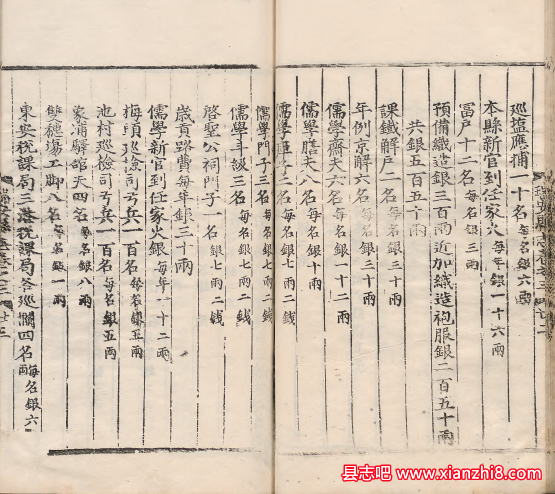 巡塩應捕一十名每名銀六兩
本縣新官到任家火每年銀一十六兩
冨戸十二名每名銀三兩
預備織造銀三百兩近加織造袍服銀二百五十兩
共銀五百五十兩
課鐵解戸二名每名銀
年例京解六名每名銀
儒學齋夫六名每名銀一十二兩
儒學膳夫八名每名銀
儒學
儒學門子三名每名銀七兩二銭
儒學斗級三名每名銀七兩二銭
啓聖公祠門子一名銀七兩二銭
歳貢路費每年銀三十兩
儒學新官到任家火銀每年一十二兩
梅頭巡檢司弓兵一百名每名銀五兩
池村巡檢司弓兵一百名每名銀五兩
浦驛舘夫四名每名銀八兩
雙穗塲工脚八名每名銀一兩
東安稅課局三港稅課局各巡攔四名每名銀六兩
縣志卷之三
廿二
廿三
县志吧 www.xianzhi8.com